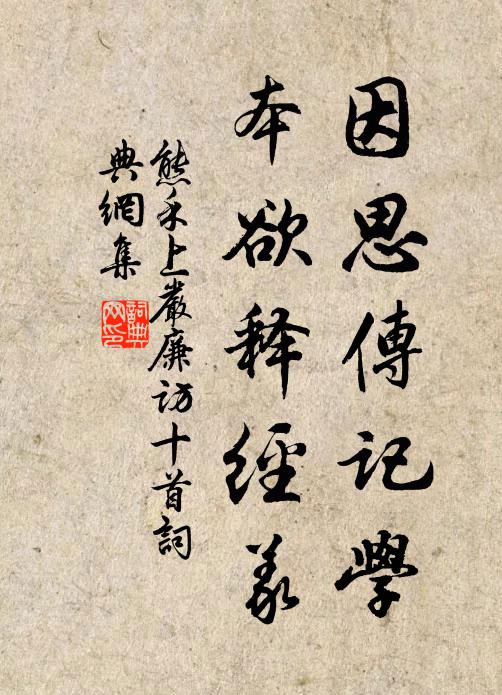 因思傳記學
本欲释經義
熊禾上嚴廉访十首詞
典網集
詞典
网印